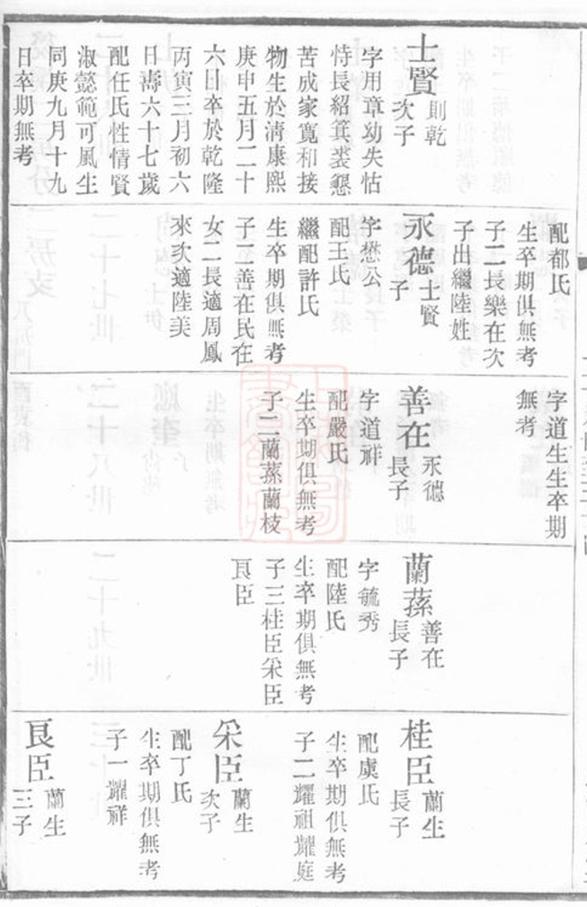 士賢 則乾次子
字用章幼失怙
恃長紹箕裘懇
苦成家寬和接
物生於清康熙
庚申五月二十
六日卒於乾隆
丙寅三月初六
日壽六十七歲
配任氏性情賢
淑懿範可風生
同庚九月十九
日卒期無考
配都氏
生卒期俱無考
子二長樂在次
子出繼陸姓
永德 士賢子
字懋公
配王氏
繼配許氏
生卒期俱無考
子二善在民在
女二長適周鳳
來次適陸美
字道生生卒期
無考
善在 永德長子
字道祥
配嚴氏
生卒期俱無考
子二蘭蓀蘭枝
蘭蓀 善在長子
字毓秀
配陸氏
生卒期俱無考
子三桂臣采臣
良臣
桂臣 蘭生長子
配虞氏
生卒期俱無考
子二耀祖耀庭
采臣 蘭生次子
配丁氏
生卒期俱無考
子一耀祥
良臣 蘭生三子